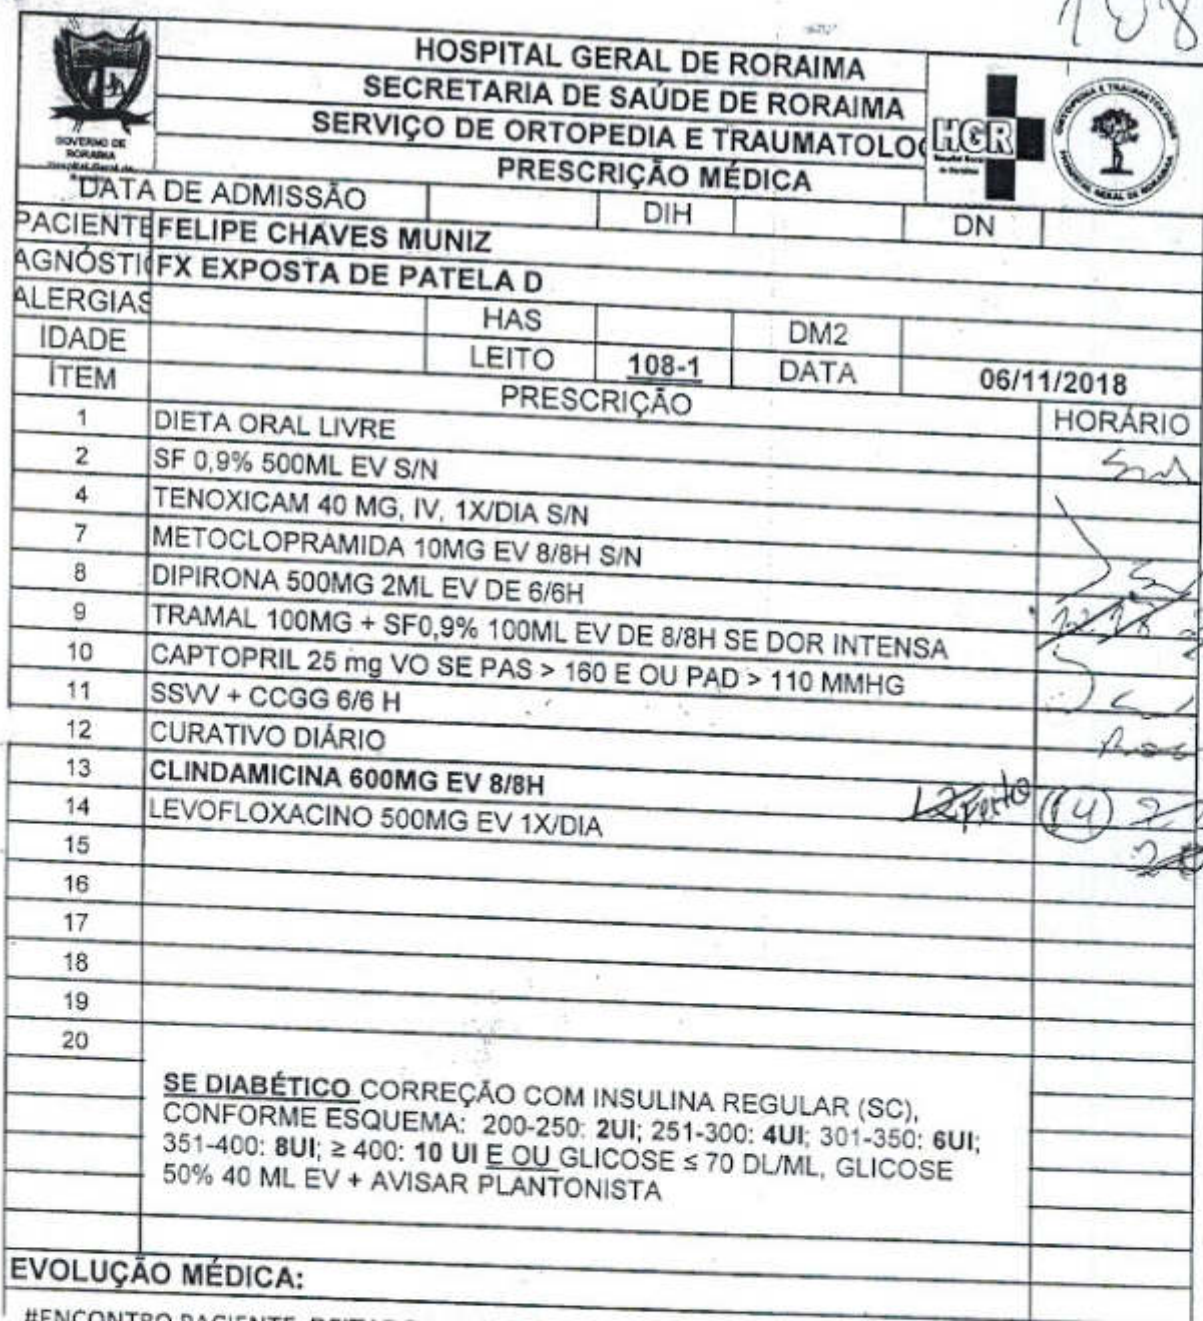 108
HOSPITAL GERAL DE RORAIMA
SECRETARIA DE SAÚDE DE RORAIMA
SERVIÇO DE ORTOPEDIA E TRAUMATOLO
PRESCRIÇÃO MÉDICA
GOVERNO DE
RORAIMA
HGR
ORTOPEDIA E TRAUMATOLOGIA
HOSPITAL GERAL DE RORAIMA
DATA DE ADMISSÃO DIH DN
PACIENTE FELIPE CHAVES MUNIZ
AGNÓSTI FX EXPOSTA DE PATELA D
ALERGIAS HAS DM2
IDADE LEITO 108-1 DATA 06/11/2018
ÍTEM PRESCRIÇÃO HORÁRIO
1 DIETA ORAL LIVRE
2 SF 0,9% 500ML EV S/N
4 TENOXICAM 40 MG, IV, 1X/DIA S/N
7 METOCLOPRAMIDA 10MG EV 8/8H S/N
8 DIPIRONA 500MG 2ML EV DE 6/6H
9 TRAMAL 100MG + SF0,9% 100ML EV DE 8/8H SE DOR INTENSA
10 CAPTOPRIL 25 mg VO SE PAS > 160 E OU PAD > 110 MMHG
11 SSVV + CCGG 6/6 H
12 CURATIVO DIÁRIO
13 CLINDAMICINA 600MG EV 8/8H
14 LEVOFLOXACINO 500MG EV 1X/DIA
15
16
17
18
19
20
SE DIABÉTICO CORREÇÃO COM INSULINA REGULAR (SC),
CONFORME ESQUEMA: 200-250: 2UI; 251-300: 4UI; 301-350: 6UI;
351-400: 8UI; ≥ 400: 10 UI E OU GLICOSE ≤ 70 DL/ML, GLICOSE
50% 40 ML EV + AVISAR PLANTONISTA
EVOLUÇÃO MÉDICA:
#ENCONTRO PACIENTE